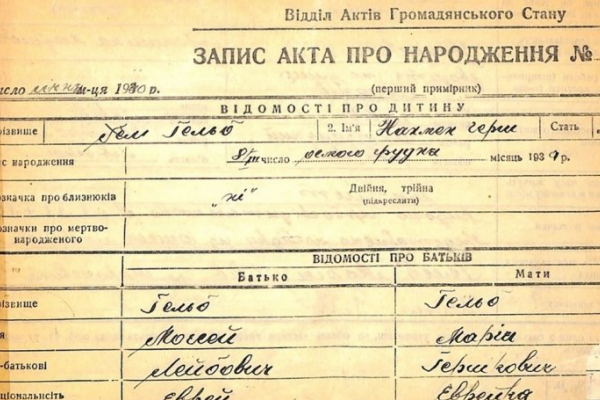 Відділ Актів Громадянського Стану
ЗАПИС АКТА ПРО НАРОДЖЕННЯ №
число січня м-ця 1940 р. (перший примірник)
ВІДОМОСТІ ПРО ДИТИНУ
різвище Гельб 2. Ім'я Нахмен Герш Стать
с народження 8/XII число осмого грудня місяць 1939 р.
означка про близнюків „ні" Двійня, трійна
(підкреслити)
означки про мертво-
народженого
ВІДОМОСТІ ПРО БАТЬКІВ
Батько Мати
різвище Гельб Гельб
я Мосей Марія
батькові Лейбович Гершкович
ціональність Еврей Еврейка